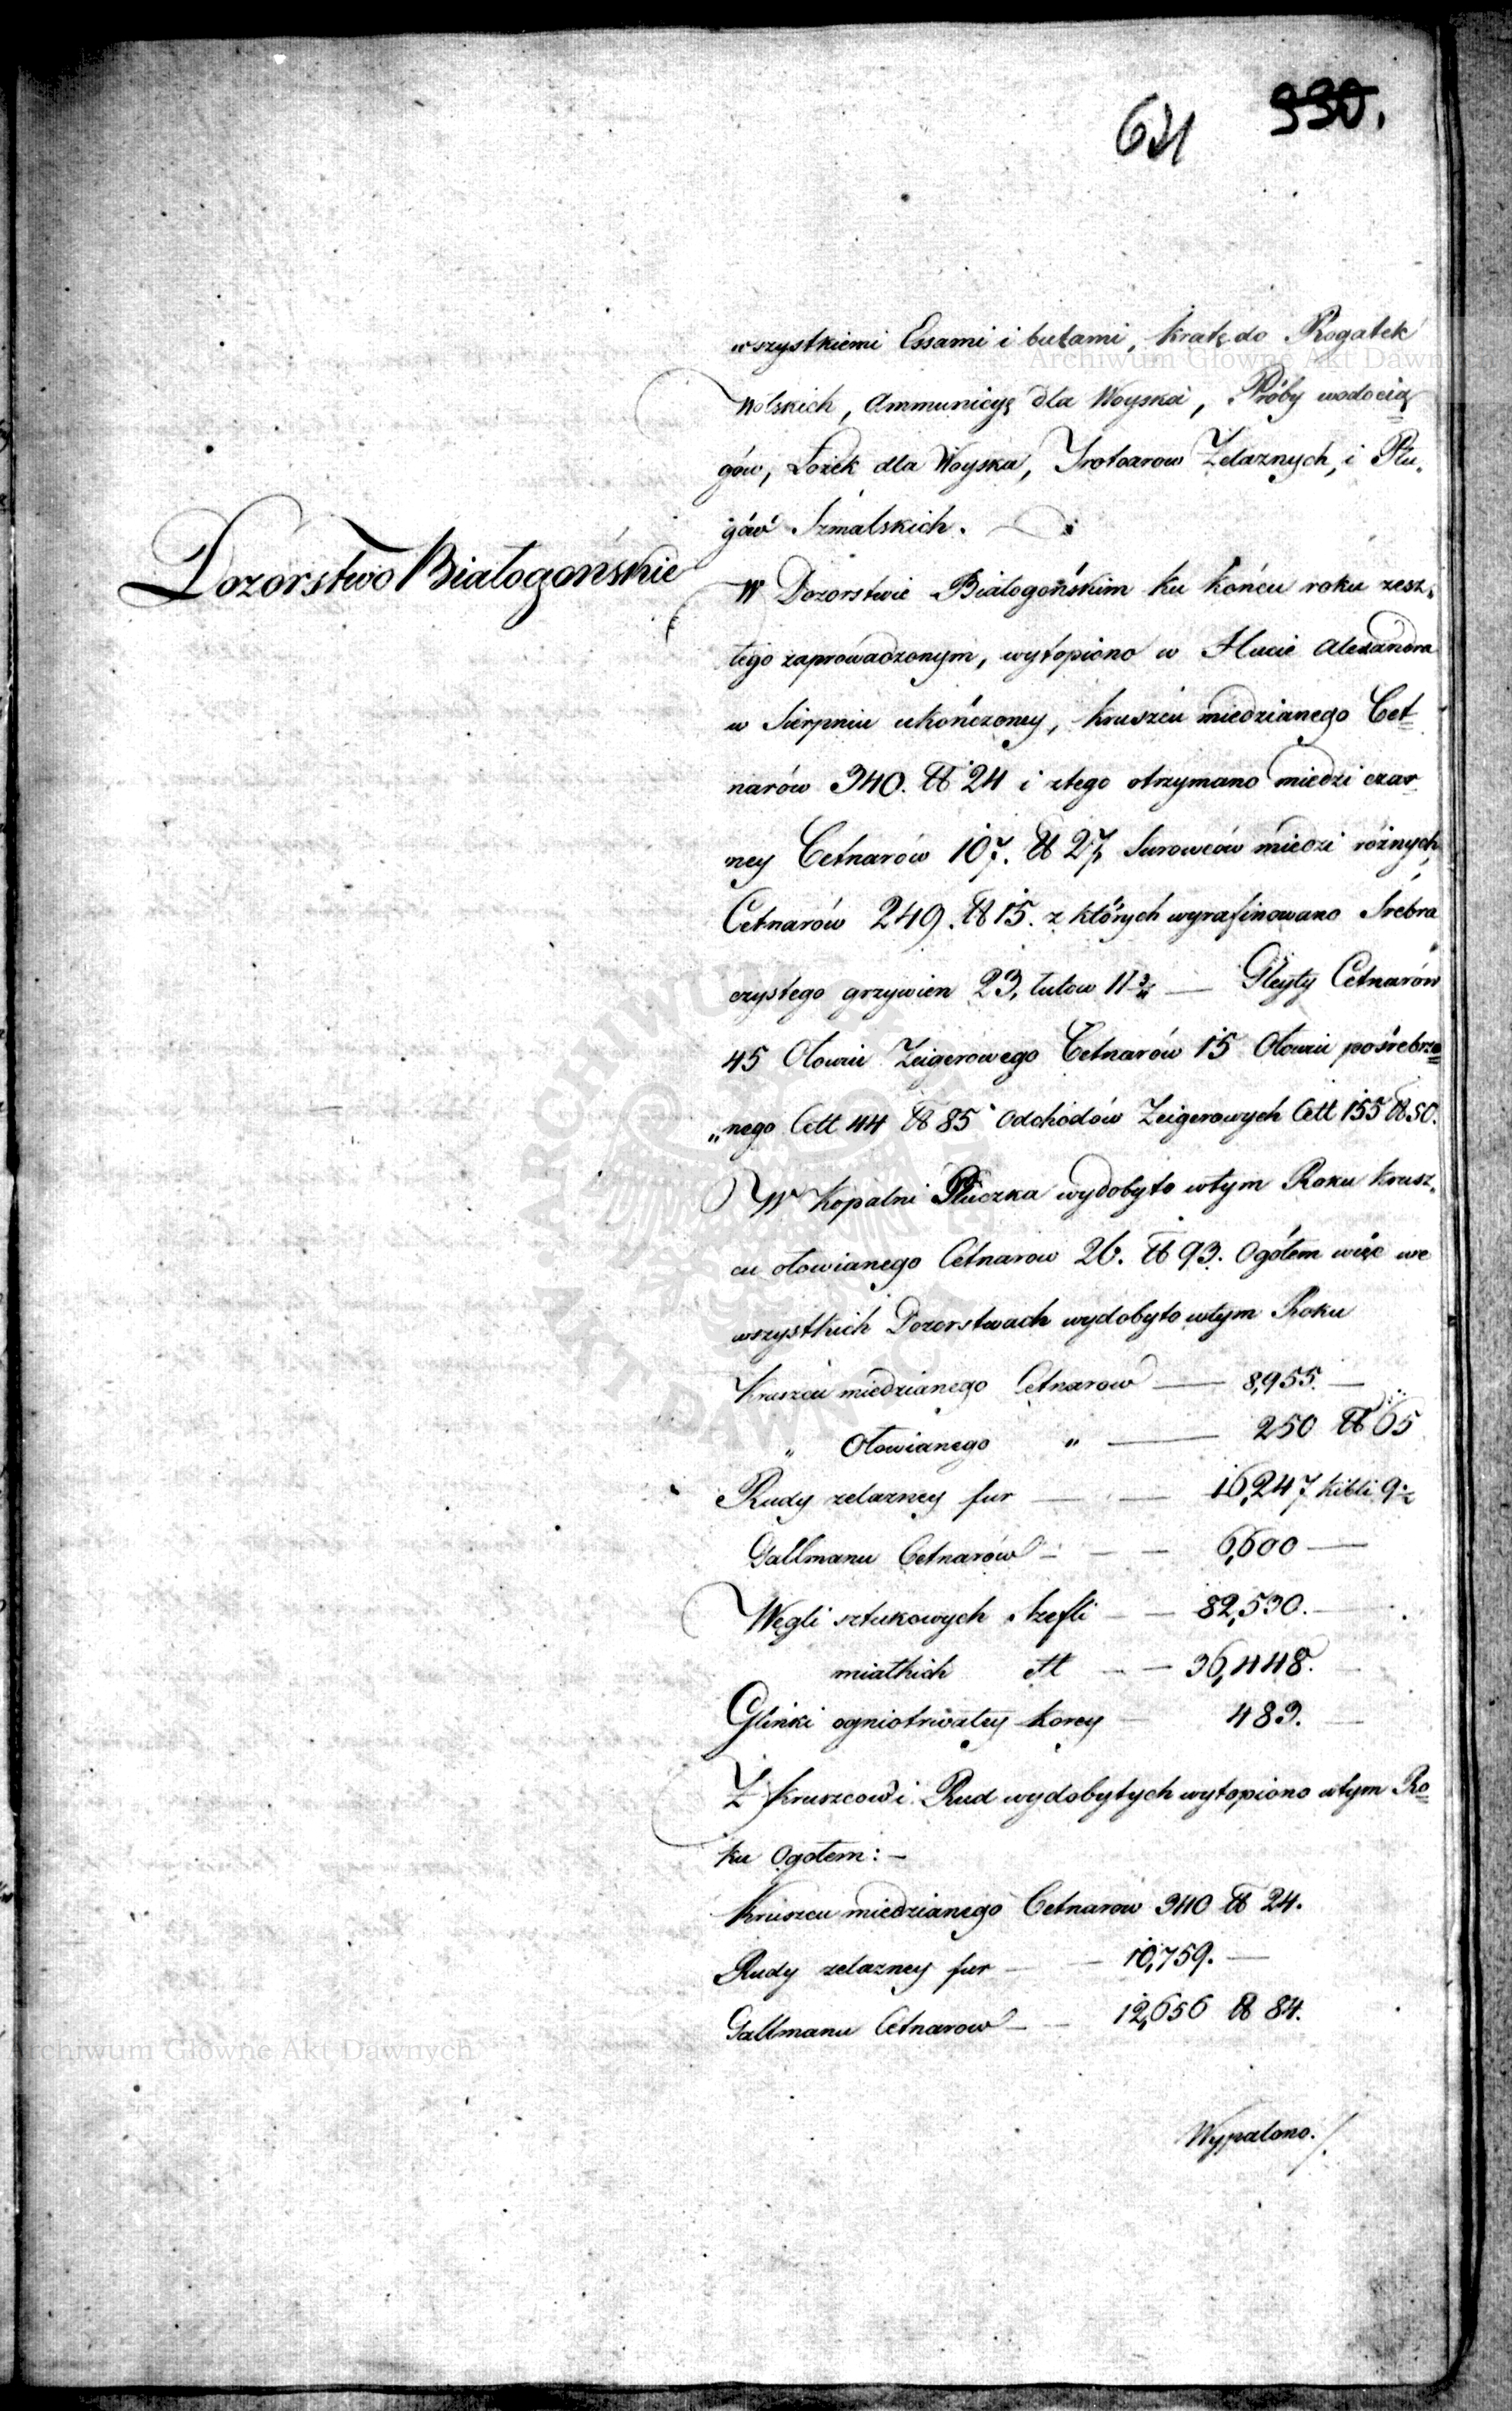 621 330.
wszystkiemi Essami i butami, kratę do Rogatek
Wolskich, Ammunicyę dla Woyska, Próby wodocią
gów, Łożek dla Woyska, Trotoarow Żelaznych, i Płu-
gów Szmalskich.
Dozorstwo Białogońskie
W Dozorstwie Białogońskim ku końcu roku zesz-
łego zaprowadzonym, wytopiono w Hucie Alexandra
w Sierpniu ukończoney, kruszcu miedzianego Cet-
narów 340. ℔ 24 i ztego otrzymano miedzi czar-
ney Cetnarów 107. ℔ 27, Surowców miedzi różnych,
Cetnarów 249. ℔ 15. z których wyrafinowano Srebra
czystego grzywien 23, łutow 11 — Gleyty Cetnarów
45 Ołowiu Zeigerowego Cetnarów 15 Ołowiu pośrebrza=
„nego Cett 44 ℔ 85 Odchodów Zeigerowych Cett 155 ℔ 50.
W Kopalni Płuczka wydobyto wtym Roku krusz-
cu ołowianego Cetnarow 26. ℔ 93. Ogółem więc we
wszystkich Dozorstwach wydobyto wtym Roku
Kruszcu miedzianego Cetnarow — 8,955. —
„ Ołowianego „ — 250 ℔ 65
Rudy zelazney fur — — 16,247 kibli 9½
Gallmanu Cetnarów — — — 6,600 —
Węgli sztukowych Szefli — — 82,530. —
miałkich — — 36,448. —
Glinki ogniotrwałey korcy — 483. —
Z kruszcow i Rud wydobytych wytopiono wtym Ro=
ku Ogołem: —
Kruszcu miedzianego Cetnarow 340 ℔ 24.
Rudy zelazney fur — — 10,759. —
Gallmanu Cetnarow — — 12,656 ℔ 84.
Wypalono./.
Archiwum Główne Akt Dawn
chiwum Główne Akt Dawnych
ARCHIWUM GŁÓWNE AKT DAWNYCH